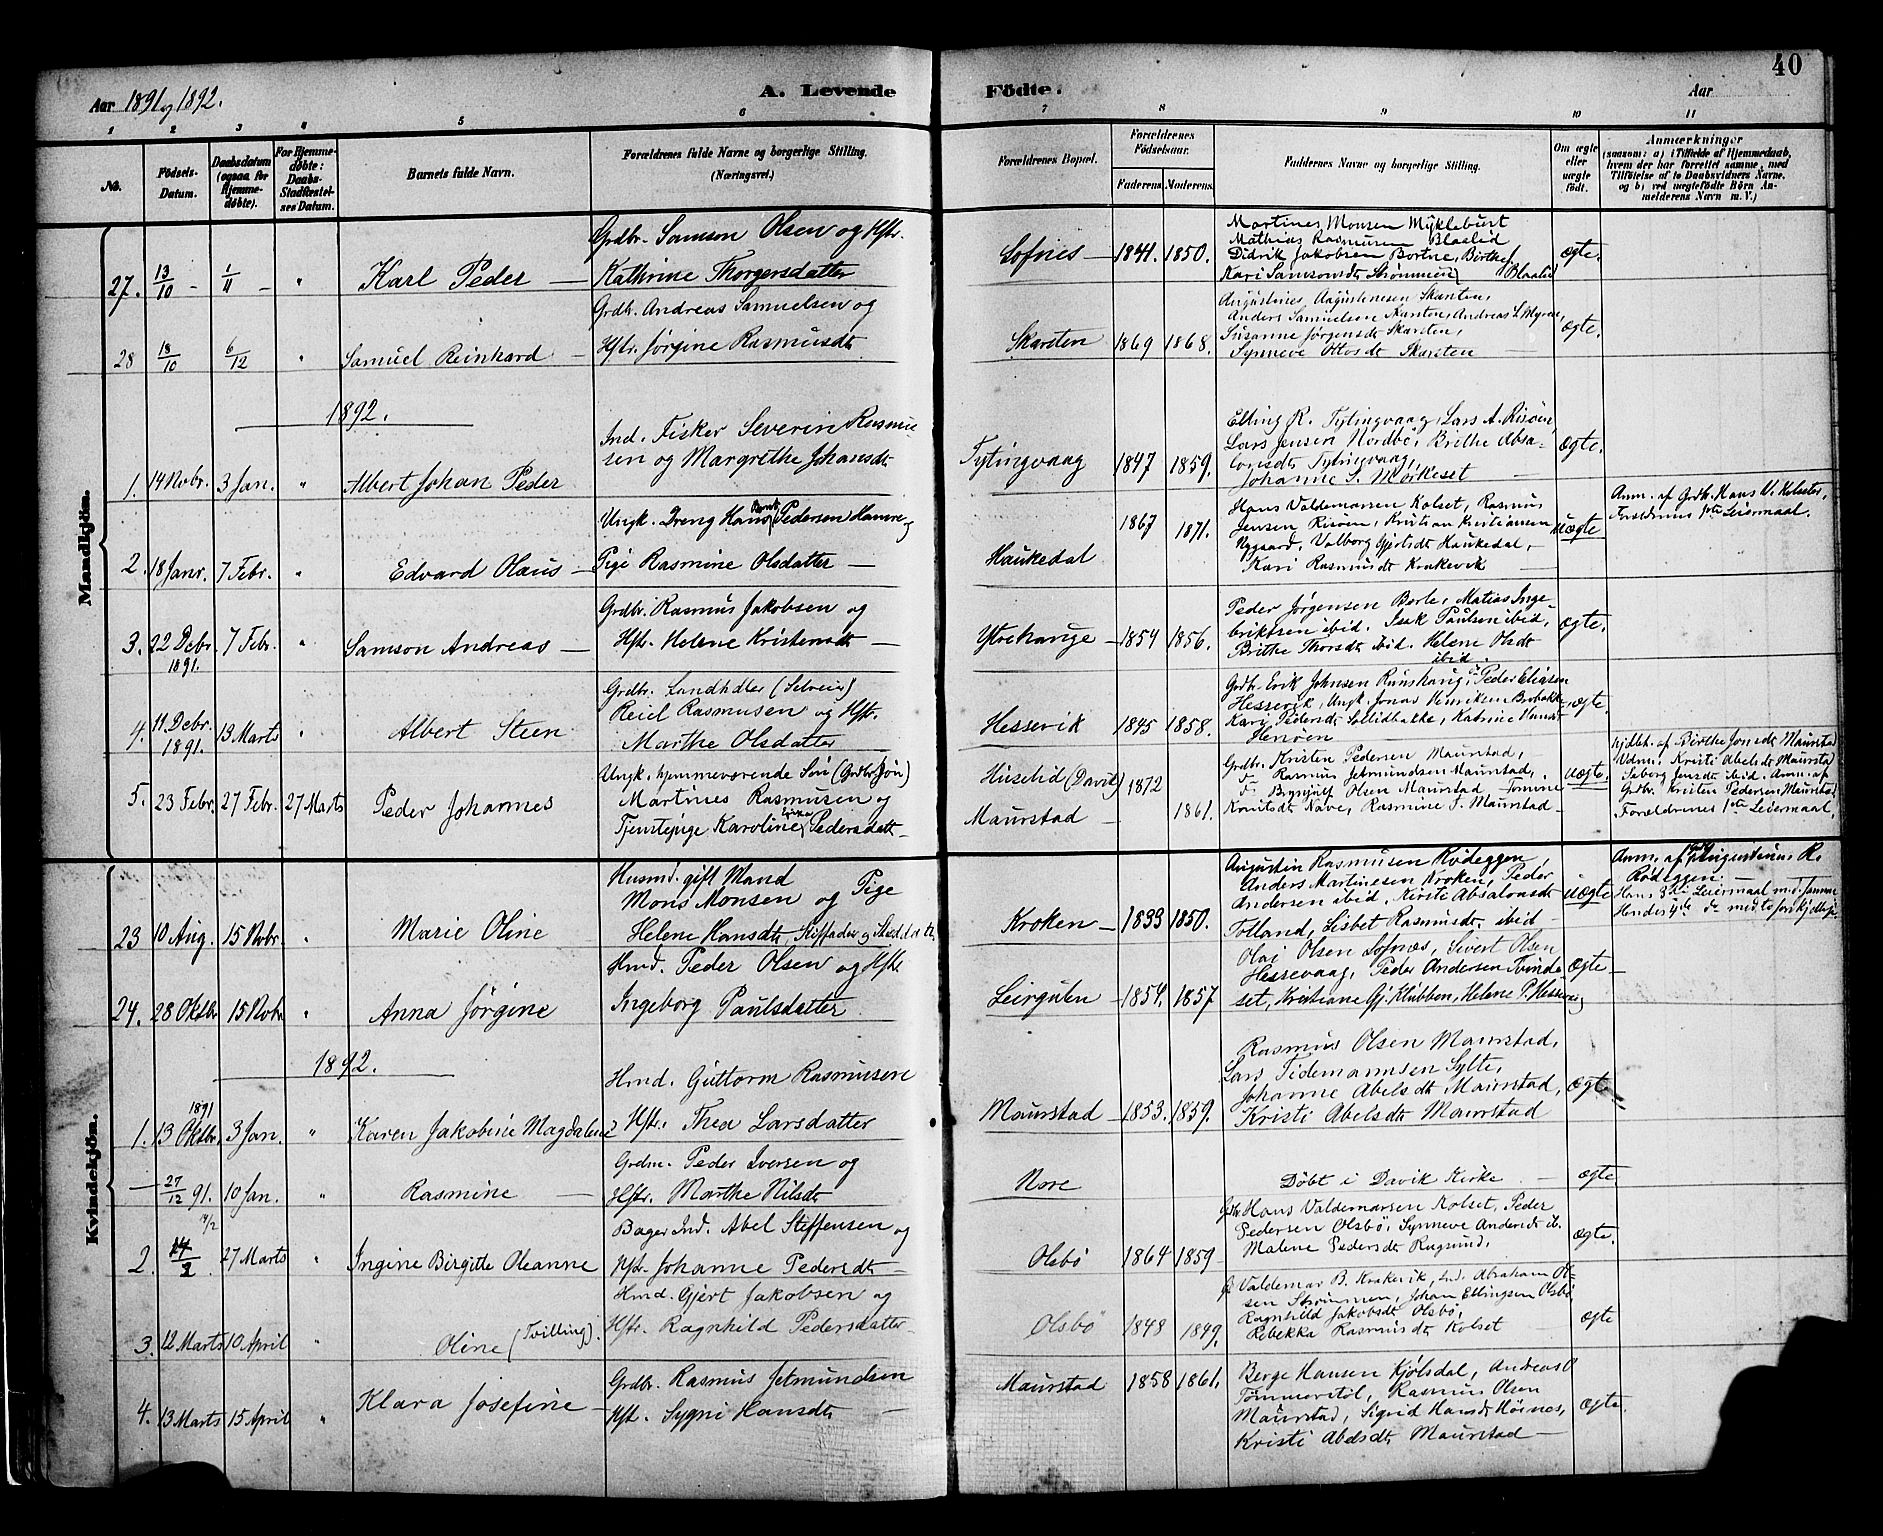 40
Aar 1891 og 1892.
A. Levende Födte.
Aar
1 2 3 4 5 6 7 8 9 10 11
No.
Födsels-Datum.
Daabsdatum (ogsaa for Hjemme-döbte).
For Hjemme-döbte: Daabs-Stadfæstel-ses Datum.
Barnets fulde Navn.
Forældrenes fulde Navne og borgerlige Stilling. (Næringsvei.)
Forældrenes Bopæl.
Forældrenes Födselsaar.
Faderens. Moderens.
Faddernes Navne og borgerlige Stilling.
Om ægte eller uægte födt.
Anmærkninger
(saasom: a) i Tilfælde af Hjemmedaab, hvem der har forrettet samme, med Tilföielse af to Daabsvidners Navne. og b) ved uægtefödte Börn An-melderens Navn m. V.)
Mandkjön.
27. 13/10 - 1/11 - " Karl Peder —
Grdbr. Samson Olsen og Hstr.
Kathrine Thorgersdatter
Lofnes — 1841. 1850.
Martines Monsen Myklebust
Mathias Rasmusen Blaalid
Didrik Jakobsen Bortne, Birthe
Kari Samsonsdt Strømmen Blaalid
ægte.
28 18/10 6/12 " Samuel Reinhard —
Grdbr. Andreas Samuelsen og
Hstr. Jørgine Rasmusdt
Skarsten 1869 1868.
Augustines Augustinesen Skarsten,
Anders Samuelsen Navsten, Andreas S. Myrene,
Susanne Jørgensdt Skarsten,
Synneve Ottosdt Skarsten —
ægte.
1892.
1. 14 Novbr. 3 Jan. " Albert Johan Peder
Ind. Fisker Severin Rasmu-
sen og Margrethe Johansdt
Tytingvaag 1847 1859.
Elling R. Tytingvaag, Lars A. Risøen,
Lars Jensen Nordbø, Brithe Absa-
lonsdt Tytingvaag,
Johanne S. Mørkeset —
Ægte.
2. 18 Janr. 7 Febr. " Edvard Olaus —
Ungk. Dreng Hans Pedersen Hamre og
Pige Rasmine Olsdatter —
Haukedal 1867 1871.
Hans Valdemarsen Kolset, Rasmus
Jensen Risøen, Kristian Kristiansen
Nygaard, Valborg Gjertsdt Haukedal, —
Kari Rasmusdt Krakevik —
uægte
Anm. af Grdb. Hans V. Kolseter,
Forældrenes 1ste Leiermaal.
3. 22 Debr. 1891. 7 Febr. " Samson Andreas —
Grdbr. Rasmus Jakobsen og
Hstr. Helene Kristensdt —
Ytrehauge — 1854 1856.
Peder Jørgensen Berle, Matias Inge-
briktsen ibid. Isak Paulsen ibid,
Brithe Thorsdt ibid. Helene Olsdt
ibid.
ægte.
4. 11 Debr. 1891. 13 Marts " Albert Steen
Grdbr. Landhdler (Selveier)
Reiel Rasmusen og Hstr.
Marthe Olsdatter
Hessevik 1845 1858.
Grdbr. Erik Johnsen Runshaug, Peder Eliasen
Hessevik, Ungk. Jonas Henriksen Berbakke
Kari Pedersdt Sollidbakke, Katrine Hansdt
Henøen —
ægte.
5. 23 Febr. 27 Febr. 27 Marts Peder Johannes
Ungk. hjemmeværende Søn (Grdbr Søn)
Martines Rasmusen og
Tjenstepige Karoline Pedersdatt —
Huselid (Davik) 1872
Maurstad — 1861.
Grdbr. Kristen Pedersen Maurstad,
do Rasmus Jetmundsen Maurstad,
do Brynjulf Olsen Maurstad
Knutsdt Nave, Rasmine S. Maurstad —
uægte
hjdbt. af Birthe Jonsdt Maurstad
Vidne: Kristi Abelsdt Maurstad
Seborg Jensdt ibid. Anm. af
Grdbr. Kristen Pedersen Maurstad
Forældrenes 1ste Leiermaal.
Kvindekjön.
23 10 Aug. 15 Novbr. " Marie Oline
Husmd. gift Mand
Mons Monsen og Pige
Helene Hansdt,
Kroken — 1833 1850.
Augustin Rasmusen Rødeggen
Anders Martinesen Kroken, Peder
Andersen ibid, Kirsti Absalonsdt
Totland, Lisbet Rasmusdt ibid —
uægte
Anm. af Augustinus R.
Rødeggen. —
Hans 3die Leiermaal med samme
Hendes 4de do med to forskjellige
24. 28 Oktbr. 15 Novbr " Anna Jørgine
Hmd. Peder Olsen og Hstr
Ingeborg Paulsdatter
Leirgulen — 1854. 1857
Olai Olsen Lofnæs, Sivert Olsen
Hessevaag, Peder Andersen Tvinde-
set, Kristiane Gj. Klubben, Helene P. Hessevaag
Ægte —
1892.
1. 13 Oktbr. 1891 3 Jan. " Karen Jakobine Magdalene
Hmd. Guttorm Rasmusen
Hstr. Thea Larsdatter
Maurstad 1853. 1859.
Rasmus Olsen Maurstad,
Lars Tidemannsen Sylte,
Johanne Abelsdt Maurstad,
Kristi Abelsdt Maurstad
Ægte
— 27/12 91. 10 Jan. " Rasmine —
Grdm. Peder Iversen og
Hstr. Marthe Nilsdt
Nore
Døbt i Davik Kirke —
ægte
2. 14/2 27 Marts " Ingine Birgitte Oleanne
Bager Ind. Abel Steffensen og
Hstr. Johanne Pedersdt —
Olsbø 1864 1859
Gdbr Hans Valdemarsen Kolset, Peder
Pedersen Olsbø, Synneve Andersdt ib.
Malene Pedersdt Rugsund.
Ægte.
3. 12 Marts 10 April " Oline (Tvilling).
Hmd. Gjert Jakobsen og
Hstr. Ragnhild Pedersdatter
Olsbö 1848 1849.
Valdemar B. Krakevik, Ind. Abraham Ol-
sen Strømmen, Johan Ellingsen Olsbø,
Ragnhild Jakobsdt Olsbø,
Rebekka Rasmusdt Kolset
ægte
4. 13 Marts 15 April " Klara Josefine —
Grdbr. Rasmus Jetmundsen
Hst. Sygni Hansdt —
Maurstad 1858 1861.
Berge Hansen Kjølsdal, Andreas O
Tømmerstøl, Rasmus Olsen
Maurstad, Sigrid Hansdt Høines,
Kristi Abelsdt Maurstad —
Ægte.